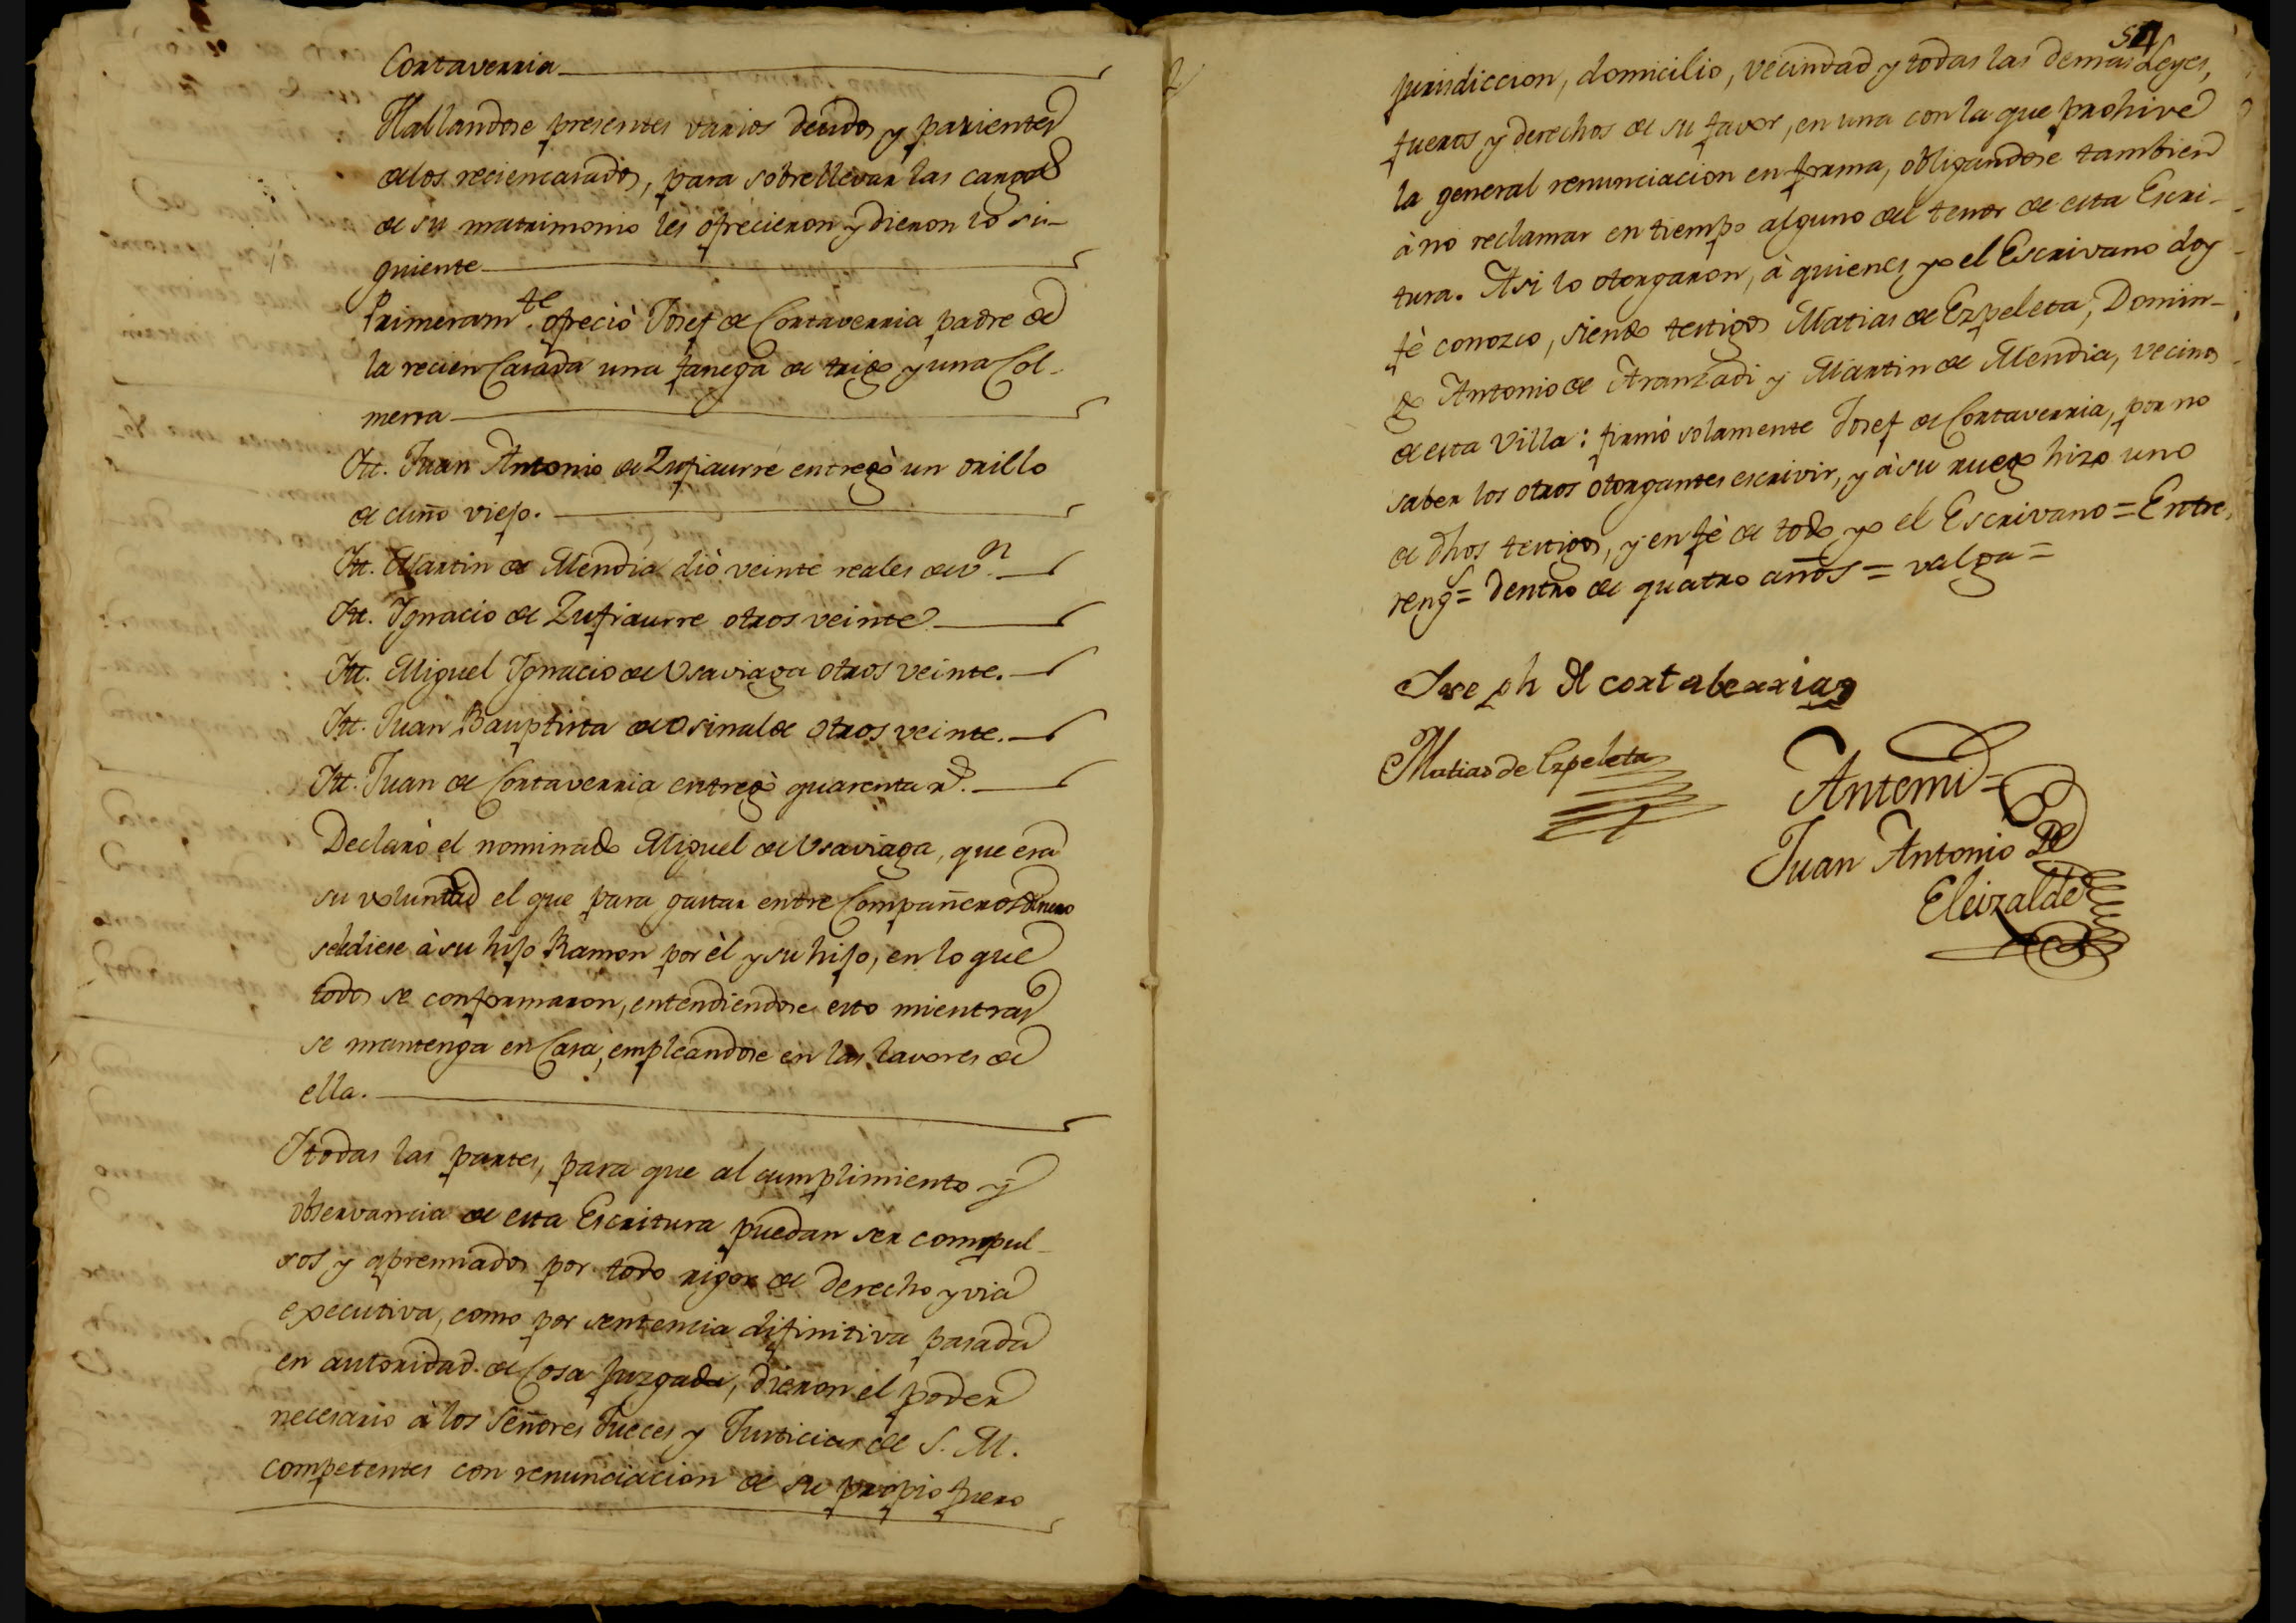 Cortaverria
Hallandose presentes varios deudos y parientes
de los reciencasados, para sobrellevar las cargas
de su matrimonio les ofrecieron y dieron lo si-
guiente
Primeram.te ofreciò Josef de Cortaverria padre de
la recien Casada una fanega de trigo y una Col-
mena
Itt. Juan Antonio de Zufiaurre entregò un orillo
de cuño viejo.
Itt. Martin de Mendia diò veinte reales de v.n
Itt. Ygnacio de Zufiaurre otros veinte
Itt. Miguel Ygnacio de Usaviaga otros veinte.
Itt. Juan Bauptista de Osinalde otros veinte.
Itt. Juan de Cortaverria entregò quarenta r.s
Declarò el nominado Miguel de Usaviaga, que era
su voluntad el que para gastar entre Compañeros dinero
selediese à su hijo Ramon por èl y su hijo, en lo que
todos se conformaron, entendiendose esto mientras
se mantenga en Casa, empleandose en las lavores de
ella.
Ytodas las partes, para que al cumplimiento y
observancia de esta Escritura puedan ser compul-
sos y apremiados por todo rigor de derecho y via
executiva, como por sentencia difinitiva pasada
en autoridad de Cosa Juzgada, dieron el poder
necesario à los Señores Jueces y Justicias de S. M.
competentes con renunciacion de su propio fuero
54
jurisdiccion, domicilio, vecindad y todas las demas Leyes,
fueros y derechos de su favor, en una con la que prohive
la general renunciacion en forma, obligandose tambien
à no reclamar en tiempo alguno del tenor de esta Escri-
tura. Asi lo otorgaron, à quienes yo el Escrivano doy
fè conozco, siendo testigos Matias de Ezpeleta, Domin-
go Antonio de Aranzadi y Martin de Mendia, vecinos
de esta Villa: firmò solamente Josef de Cortaverria, por no
saber los otros otorgantes escrivir, y à su ruego hizo uno
de dhos testigos, y en fè de todo yo el Escrivano = Entre
reng.s = dentro de quatro años = valga =
Joseph de cortaberria
Matias de Ezpeleta
Antemi =
Juan Antonio De
Eleizalde